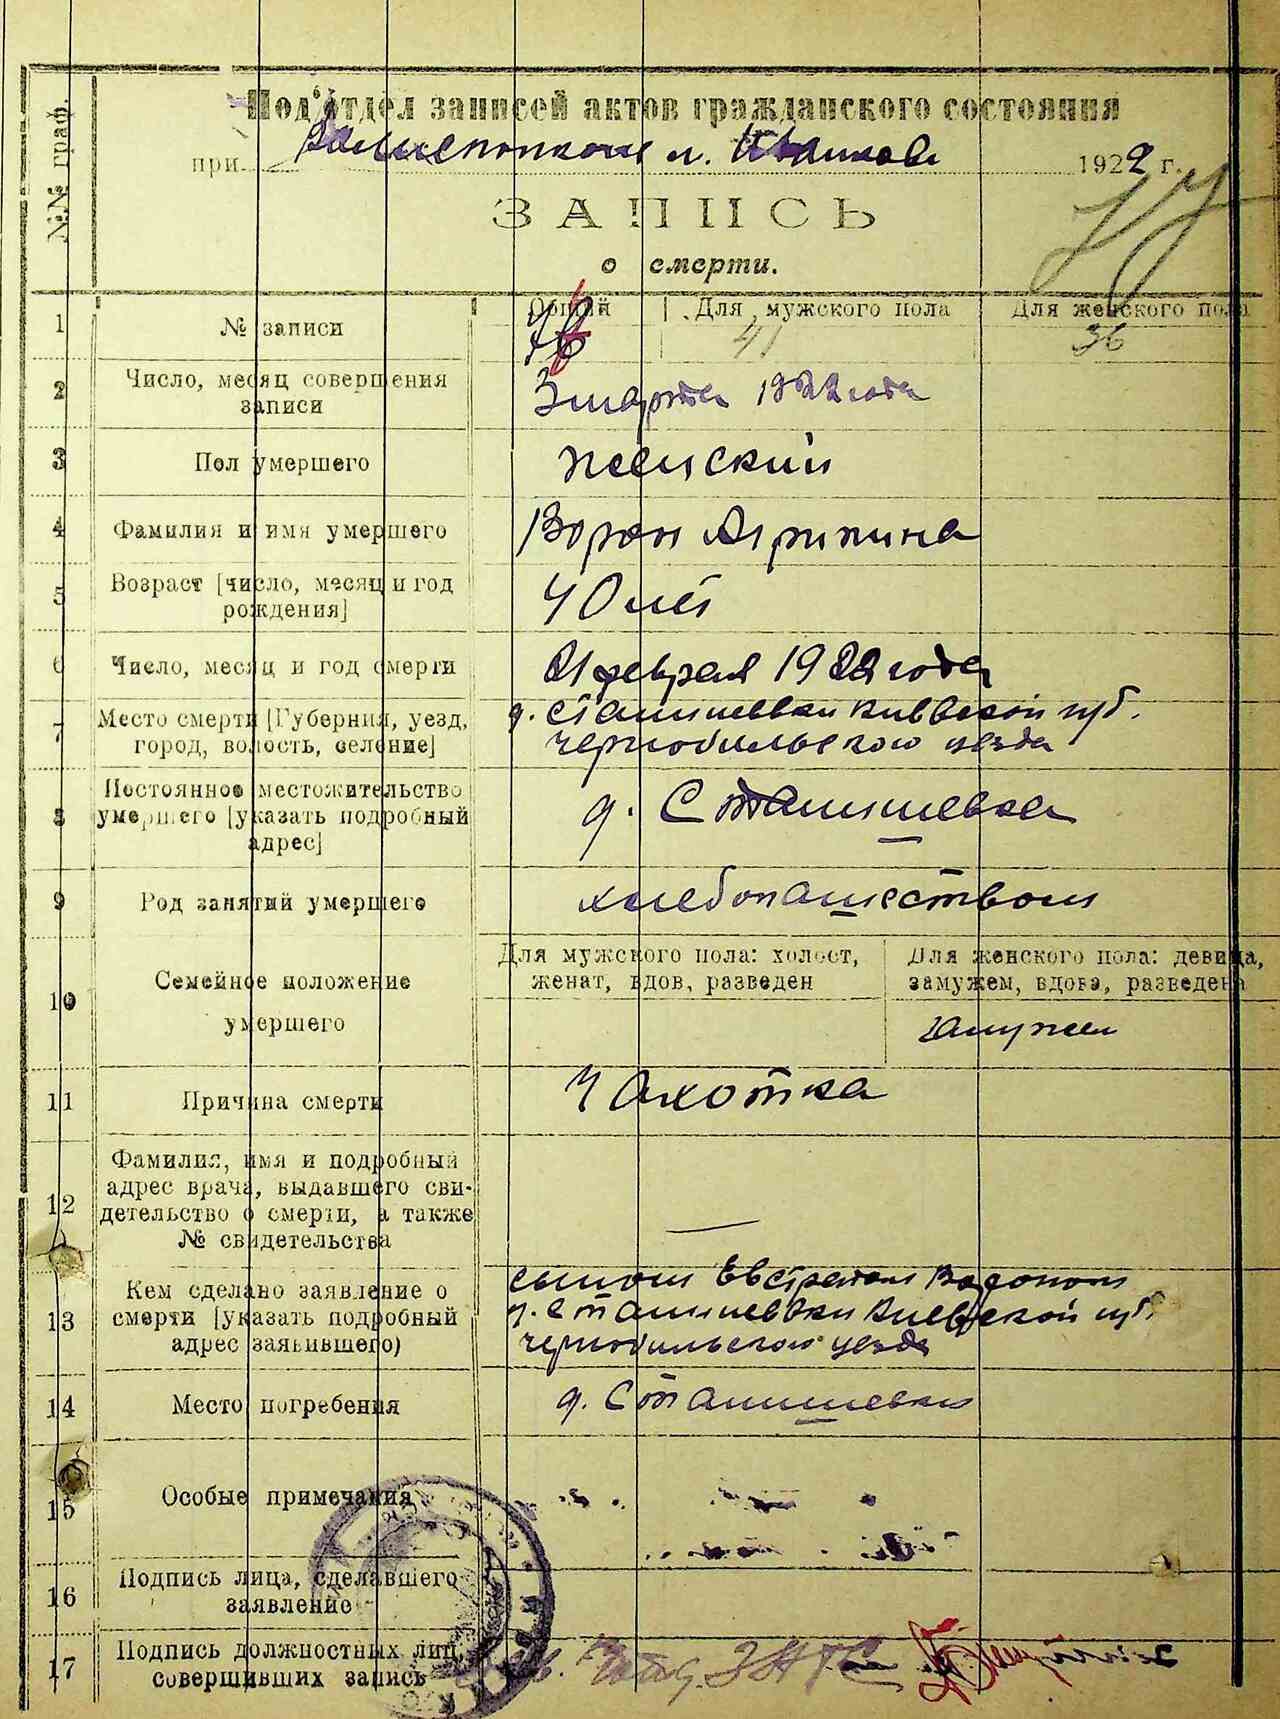 Под'отдел записей актов гражданского состояния
при Волисполкоме м. Иванков 1922 г.
ЗАПИСЬ
о смерти.
№№ граф
1 № записи Общий Для мужского пола Для женского пола
41 36
2 Число, месяц совершения
записи
3 марта 1922 года
3 Пол умершего женский
4 Фамилия и имя умершего Ворон Агрипина
5 Возраст [число, месяц и год
рождения]
40 лет
6 Число, месяц и год смерти 21 февраля 1922 года
7 Место смерти [Губерния, уезд,
город, волость, селение]
д. Станишевки Киевской губ.
Чернобильского уезда
8 Постоянное местожительство
умершего [указать подробный
адрес]
д. Станишевка
9 Род занятий умершего хлебопашеством
10 Семейное положение
умершего
Для мужского пола: холост,
женат, вдов, разведен
Для женского пола: девица,
замужем, вдова, разведена
замужем
11 Причина смерти Чахотка
12 Фамилия, имя и подробный
адрес врача, выдавшего сви-
детельство о смерти, а также
№ свидетельства
—
13 Кем сделано заявление о
смерти [указать подробный
адрес заявившего)
сыном Евстратом Вороном
д. Станишевки Киевской губ.
Чернобильского уезда
14 Место погребения д. Станишевки
15 Особые примечания
16 Подпись лица, сделавшего
заявление
17 Подпись должностных лиц,
совершивших запись
ЗАГС